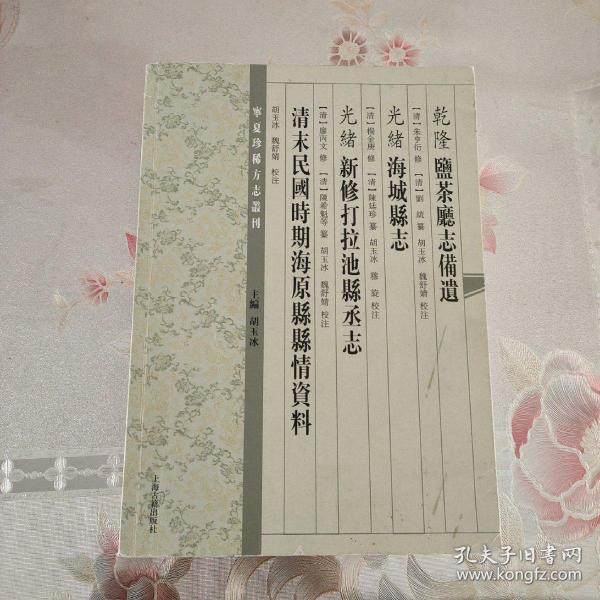 乾隆 鹽茶廳志備遺
〔清〕朱亨衍 修 〔清〕劉統 纂 胡玉冰 魏舒婧 校注
光緒 海城縣志
〔清〕楊金庚 修 〔清〕陳廷珍 纂 胡玉冰 穆旋 校注
光緒 新修打拉池縣丞志
〔清〕廖丙文 修 〔清〕陳希魁等 纂 胡玉冰 魏舒婧 校注
清末民國時期海原縣縣情資料
胡玉冰 魏舒婧 校注
寧夏珍稀方志叢刊
主編 胡玉冰
上海古籍出版社
孔夫子旧书网
www.kongfz.com